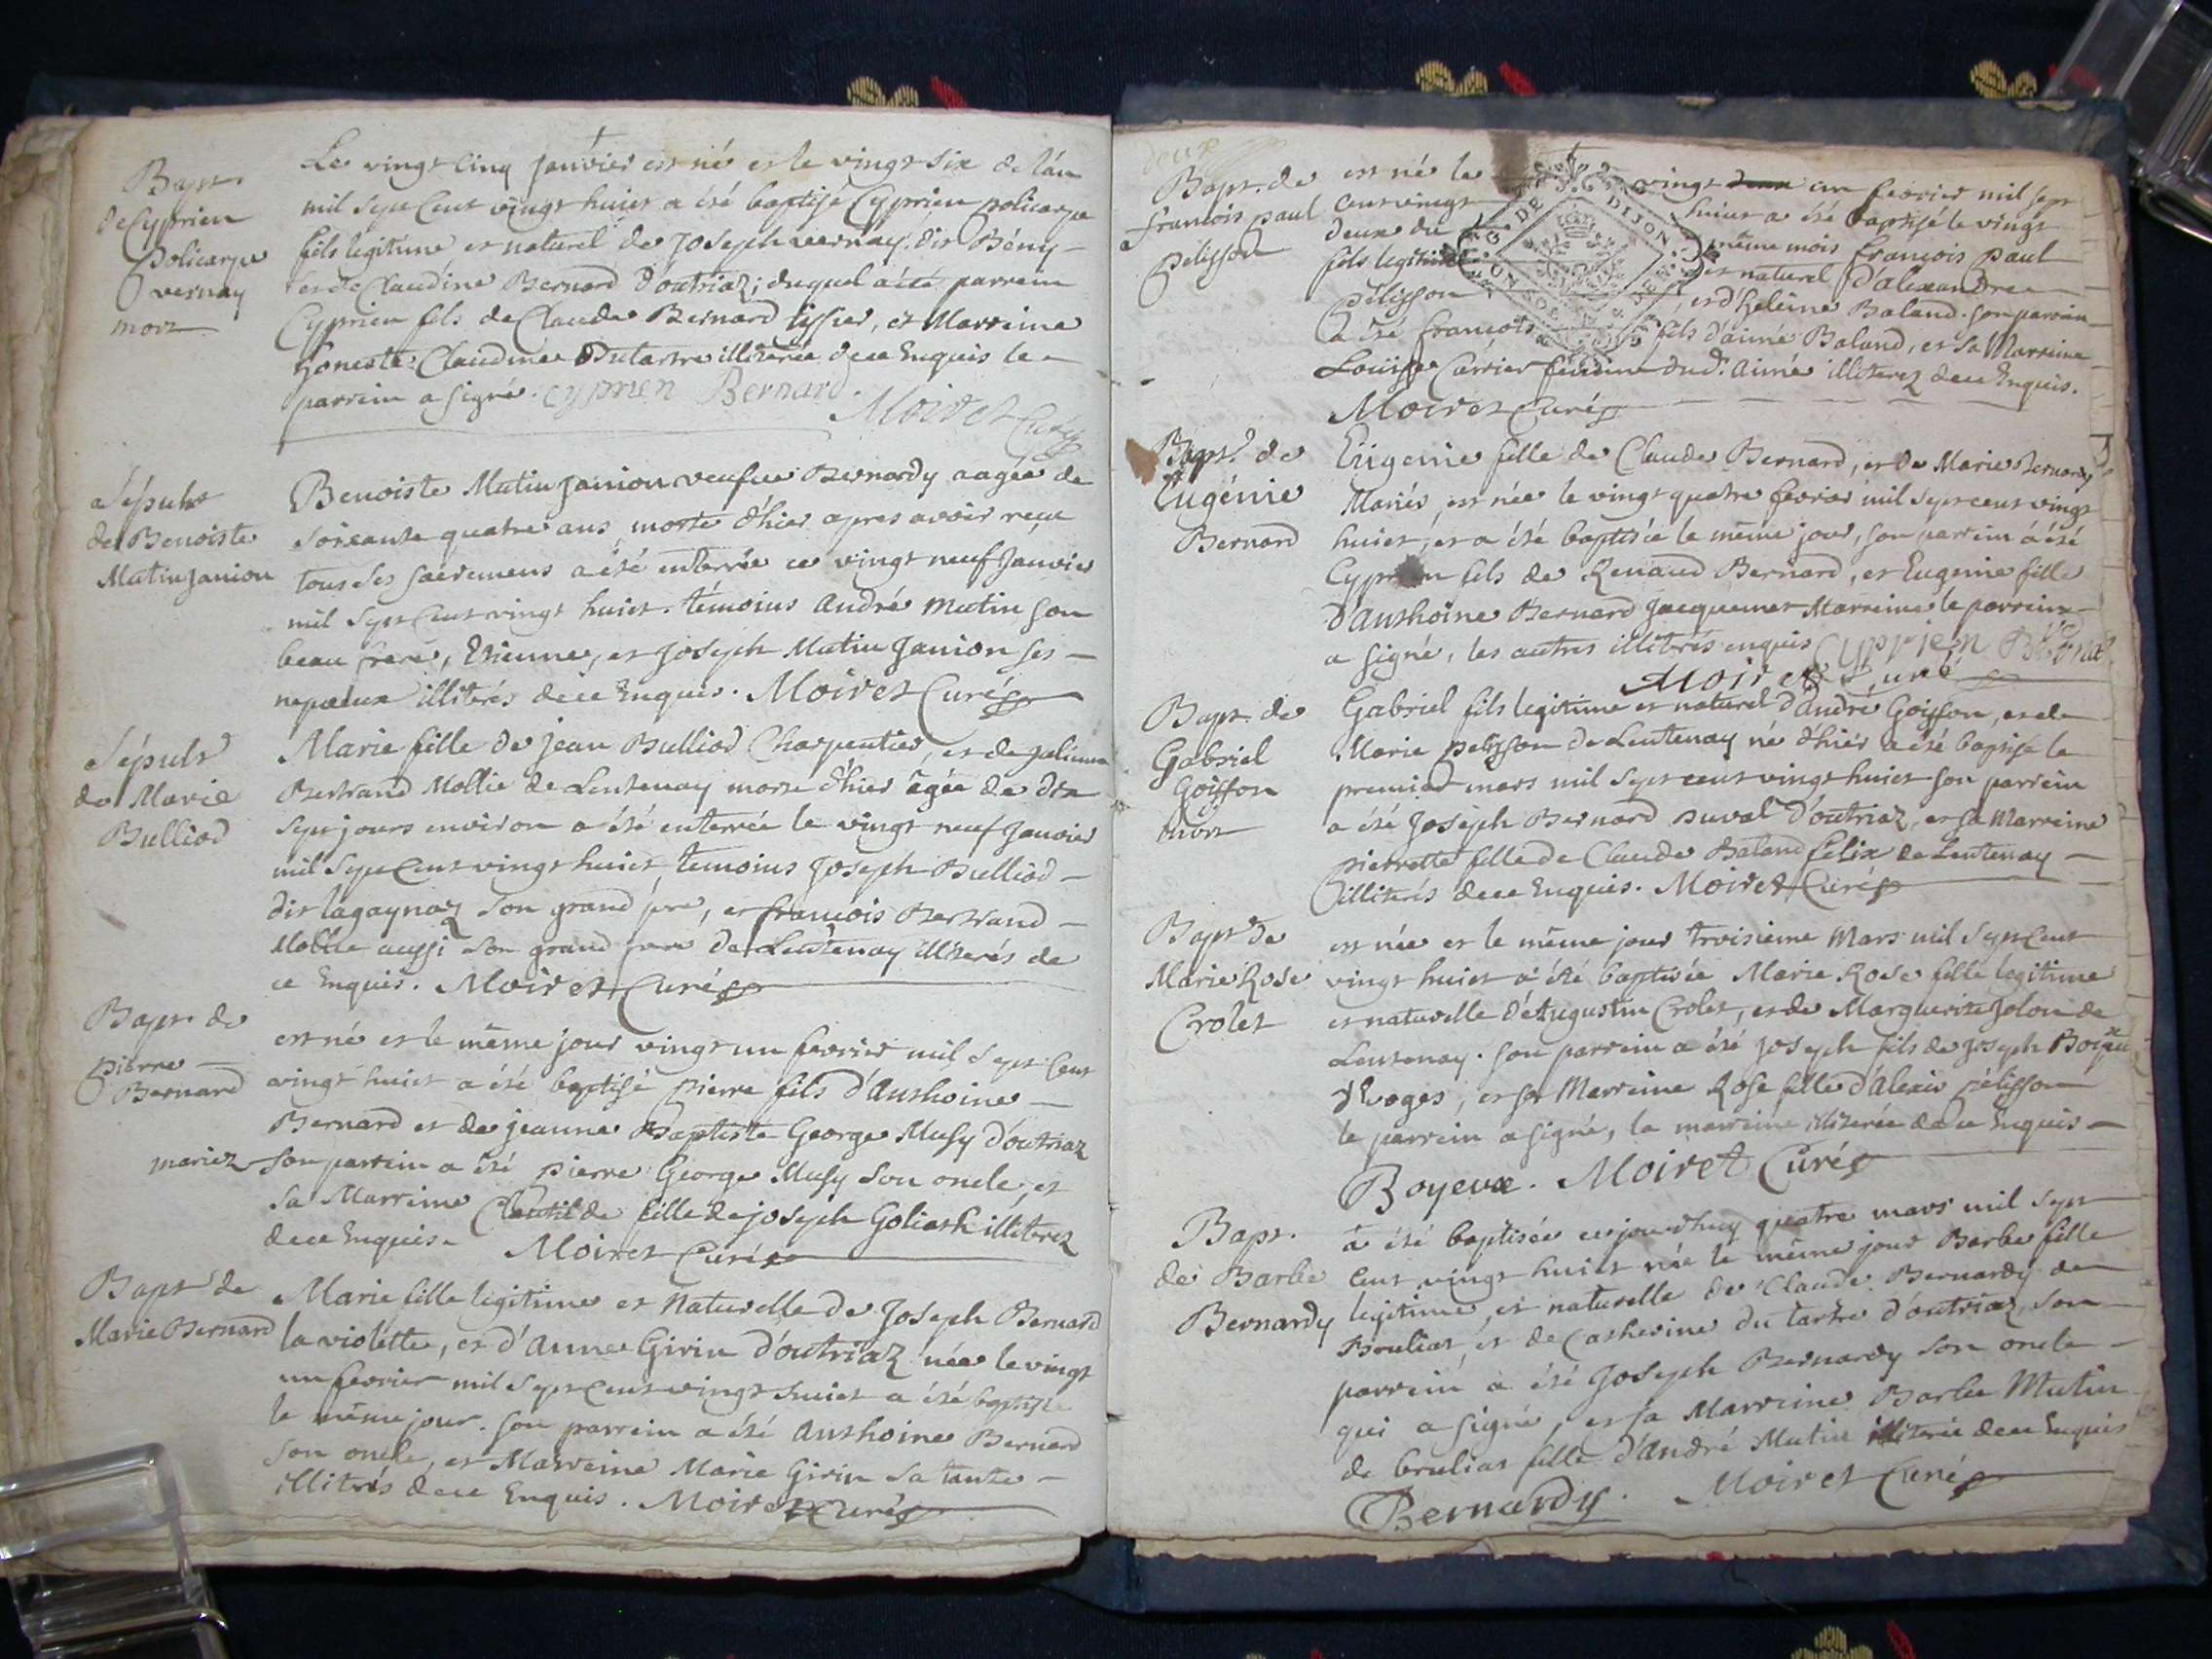 Bapt.
de Cyprien
policarpe
vernay
mort
Le vingt cinq janvier est né et le vingt six de l'an
mil sept cent vingt huict a été baptisé Cyprien policarpe
fils legitime et naturel de Joseph vernay dit Bény
et de Claudine Bernard d'outriaz; duquel a été parrein
Cyprien fils de Claude Bernard tissier, et Marreine
honeste Claudine Dutartre illiterée de ce enquis le
parrein a signé. cyprien Bernard.
Moiret Curé
Sépult
de Benoiste
Mutin Janion
Benoiste Mutin Janion veufve Bernardy aagée de
soixante quatre ans, morte d'hier apres avoir reçu
tous ses sacremens a été enterrée ce vingt neuf Janvier
mil sept cent vingt huict. témoins André Mutin son
beau frere, Etienne, et Joseph Mutin Janion ses
nepveux illitrés de ce enquis. Moiret Curé
Sépult
de Marie
Bulliod
Marie fille de jean Bulliod Charpentier, et de
Bertrand Mollie de Lentenay morte d'hier âgée de dix
sept jours environ a été enterrée le vingt neuf Janvier
mil sept cent vingt huict, temoins Joseph Bulliod
dit lagaynaz son grand pere, et francois Bertrand
Mollie aussi son grand pere de Lentenay illiterés de
ce enquis. Moiret Curé
Bapt. de
pierre
Bernard
est né et le même jour vingt un fevrier mil sept cent
vingt huict a été baptisé pierre fils d'Anthoine
Bernard et de jeanne Baptiste George Musy d'outriaz
mariez son parrein a été pierre George Musy son oncle, et
sa Marreine Clautilde fille de joseph Goliath illiterez
de ce enquis. Moiret Curé
Bapt de
Marie Bernard
Marie fille legitime et Naturelle de Joseph Bernard
la violette, et d'Anne Girin d'outriaz née le vingt
un fevrier mil sept cent vingt huict a été baptisée
le même jour. son parrein a été Anthoine Bernard
son oncle, et Marreine Marie Girin sa tante
illitrés de ce enquis. Moiret Curé
deux
Bapt. de
francois paul
pelisson
est né le vingt deux un fevrier mil sept
cent vingt huict a été baptisé le vingt
deux du même mois francois paul
fils legitime et naturel d'alexandre
Pélisson, et d'heleine Baland. son parrein
a été francois fils d'aimé Baland, et sa Marreine
Louise Carrier femme dud. aimé illiterez de ce enquis.
Moiret Curé
G DE DIJON
Bapt. de
Eugénie
Bernard
Eugenie fille de Claude Bernard, et de Marie Bernard
Mariés, est née le vingt quatre fevrier mil sept cent vingt
huict, et a été baptisée le même jour, son parrein a été
Cyprien fils de Renaud Bernard, et Eugenie fille
d'Anthoine Bernard Jacquemet Marreine le parrein
a signé, les autres illitrés enquis Cyprien Bernard
Moiret Curé
Bapt. de
Gabriel
Goisson
mort
Gabriel fils legitime et naturel d'André Goisson, et de
Marie pelisson de Lentenay né d'hier a été baptisé le
premier mars mil sept cent vingt huict son parrein
a été Joseph Bernard duval d'outriaz, et sa Marreine
pierrette fille de Claude Baland felix de Lentenay
illitrés de ce enquis. Moiret Curé
Bapt de
Marie Rose
Crolet
est née et le même jour troisieme Mars mil sept cent
vingt huict a été baptisée Marie Rose fille legitime
et naturelle d'Augustin Crolet, et de Marguerite Jolon de
Lentenay. son parrein a été Joseph fils de Joseph Boyeux
d'Izoges, et sa Marreine Rose fille d'Alexis pélisson
le parrein a signé, la marreine illiterée de ce enquis
Boyeux. Moiret Curé
Bapt.
de Barbe
Bernardy
a été baptisée cejourdhuy quatre mars mil sept
cent vingt huict née le même jour Barbe fille
legitime, et naturelle de Claude Bernardy de
Brulias, et de Catherine du tartre d'outriaz, son
parrein a été Joseph Bernardy son oncle
qui a signé, et sa Marreine Barbe Mutin
de brulias fille d'André Mutin illiterée de ce enquis
Bernardy. Moiret Curé